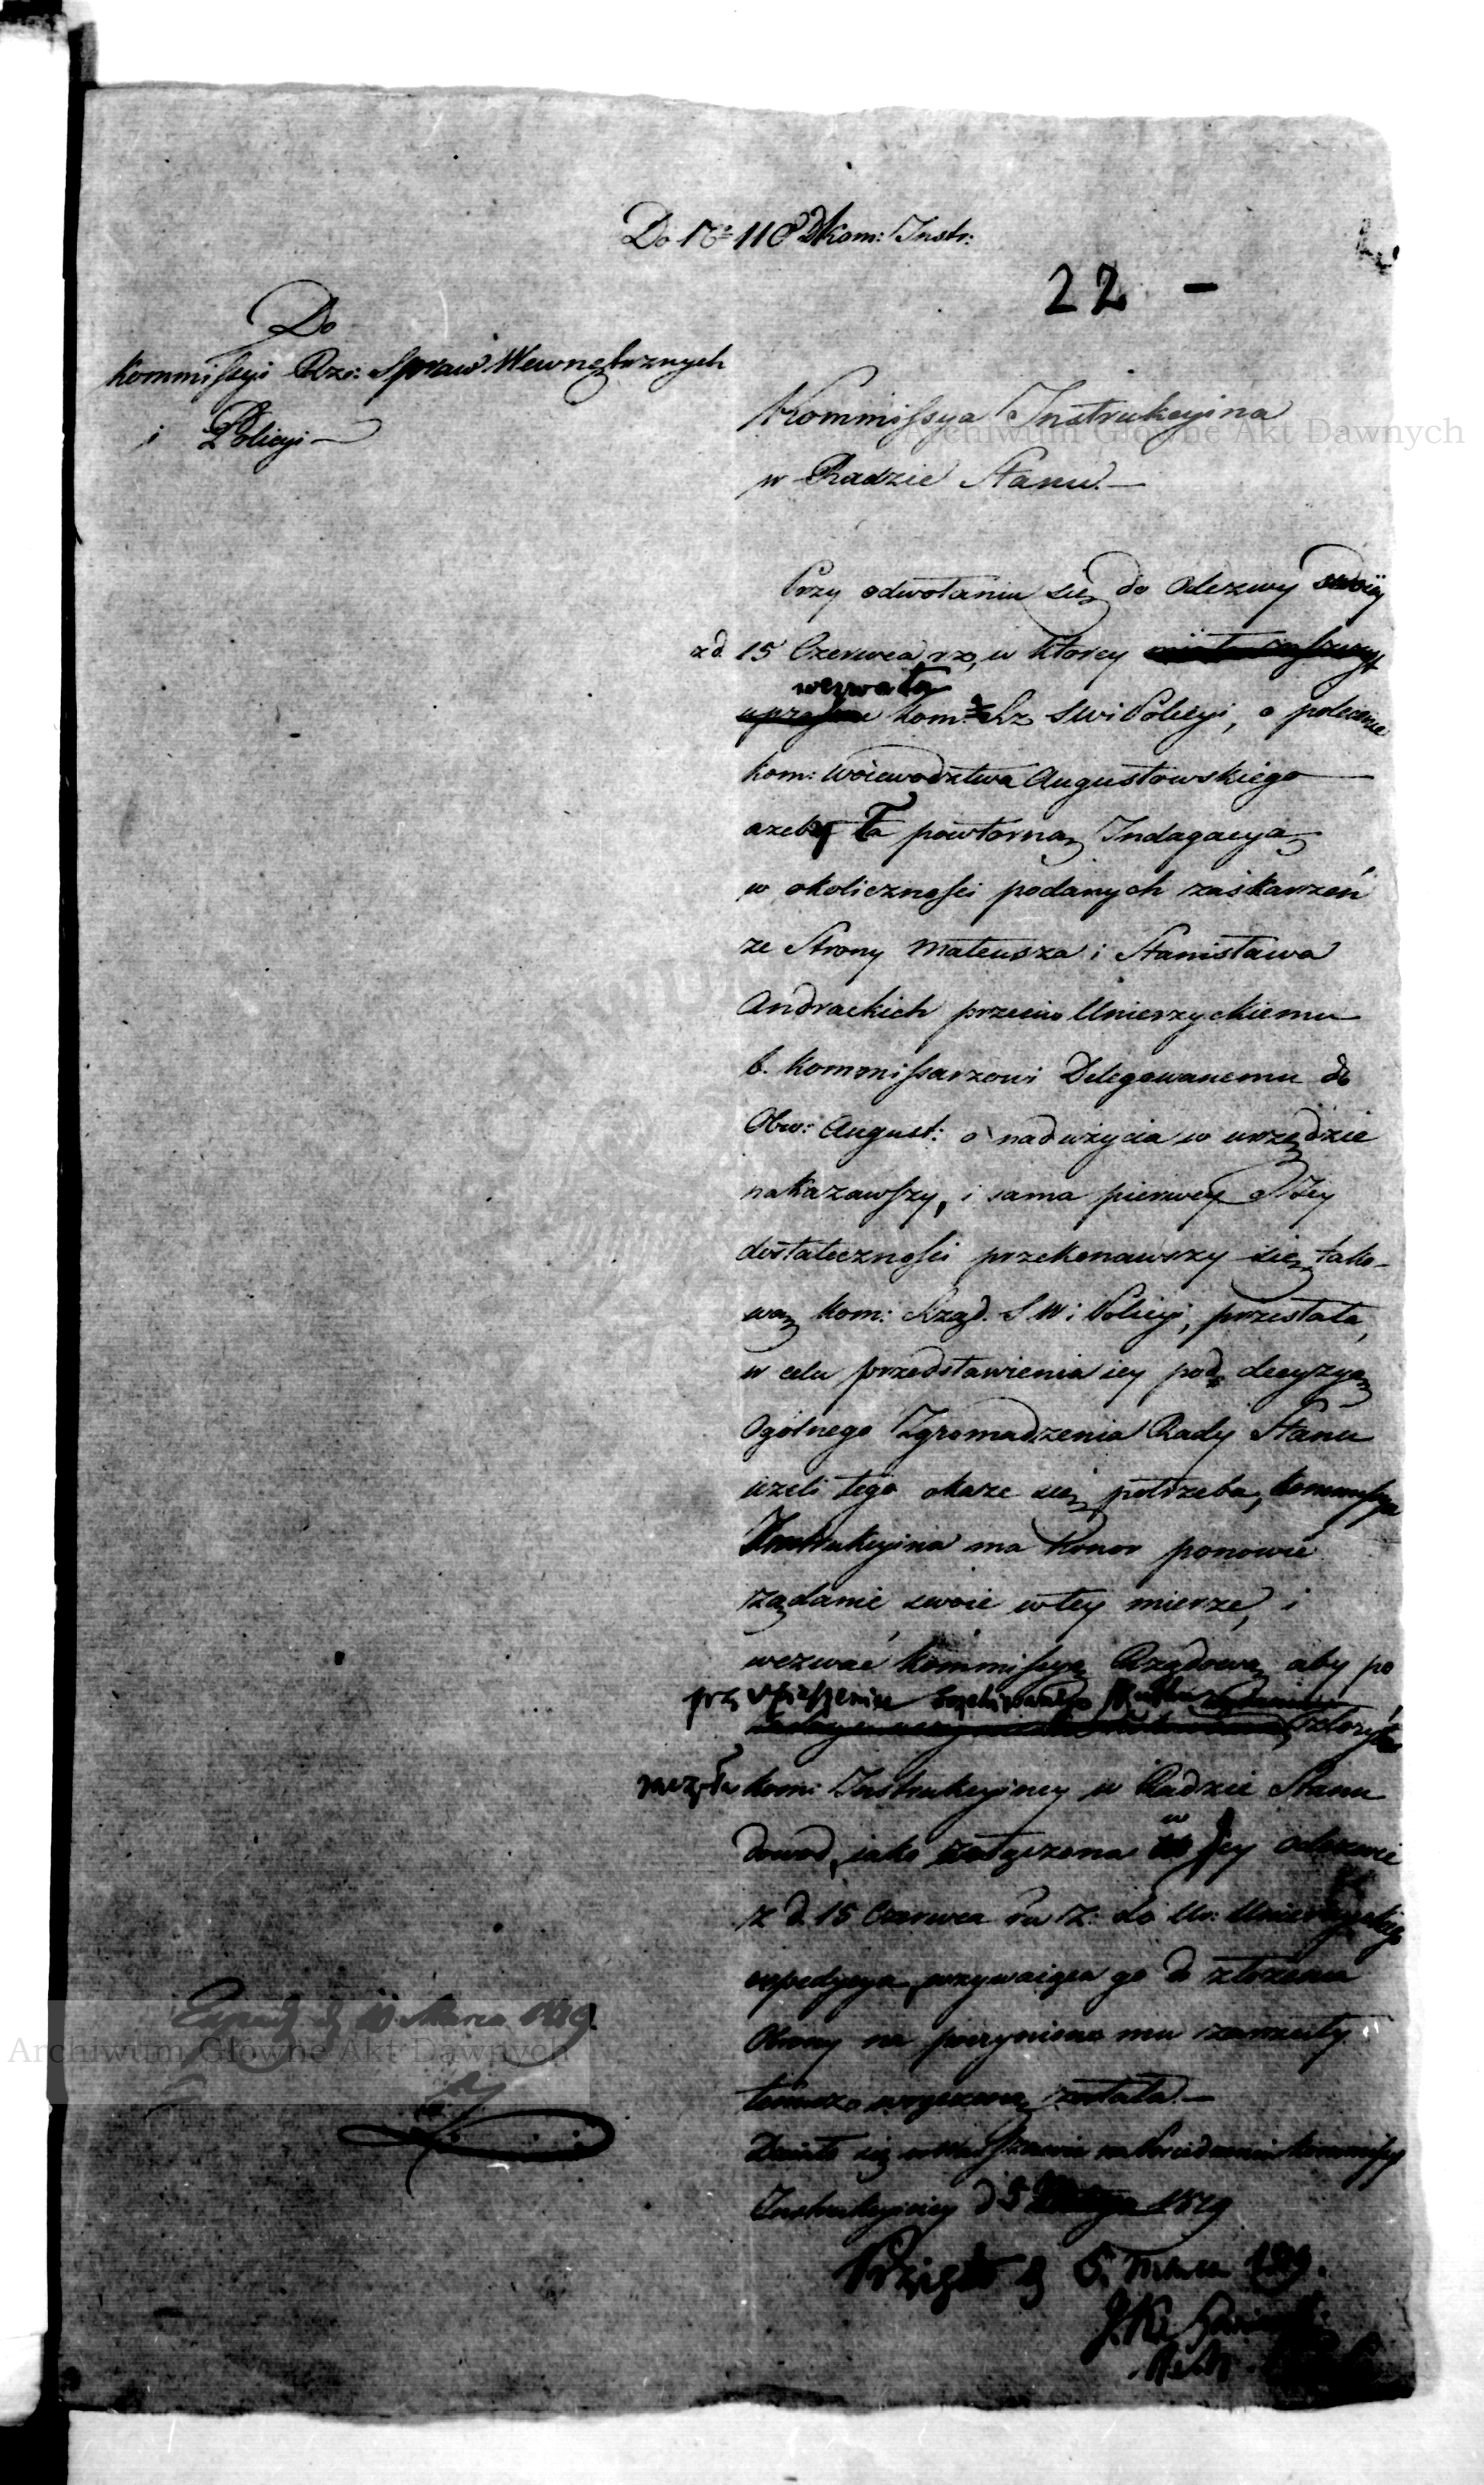 Do No 110 Kom: Instr:
22 —
Do
Kommissyi Rzo: Spraw Wewnętrznych
i Policyi
Kommissya Instrukcyina
w Radzie Stanu.
Przy odwołaniu się do Odezwy swoiey
z d. 15 Czerwca rz, w ktorey
wezwała
Kom: Rz S W i Policyi, o polecenie
Kom: Woiewodztwa Augustowskiego
azeby Ta powtorną Indagacyą
w okoliczności podanych zaskarzeń
ze Strony Mateusza i Stanisława
Andrackich przeciw Unierzyckiemu
b. Kommissarzowi Delegowanemu do
Obw: August: o nadużycia w urzędzie
nakazawszy, i sama pierwey o Jey
dostateczności przekonawszy się, tako-
wą Kom: Rząd. S W i Policyi, przesłała,
w celu przedstawienia iey pod decyzyą
Ogolnego Zgromadzenia Rady Stanu
iezeli tego okaze się potrzeba, Kommissya
Instrukcyina ma honor ponowić
ządanie swoie w tey mierze, i
wezwać Kommissyą Rządową aby po
złozyła
Kom: Instrukcyiney w Radzie Stanu
dowod, iako załączona w Jey odezwie
z d. 15 Czerwca do Ur: Unierzyckiego
expedycya, wzywaiąca go do złozenia
Obrony na poczynione mu zarzuty
temuz wręczona została.—
Działo się w Warszawie na Posiedzeniu Kommissyi
Instrukcyiney d 5 1819
Przyięto d 5. Marca 1819.
Archiwum Główne Akt Dawnych
Archiwum Główne Akt Dawnych